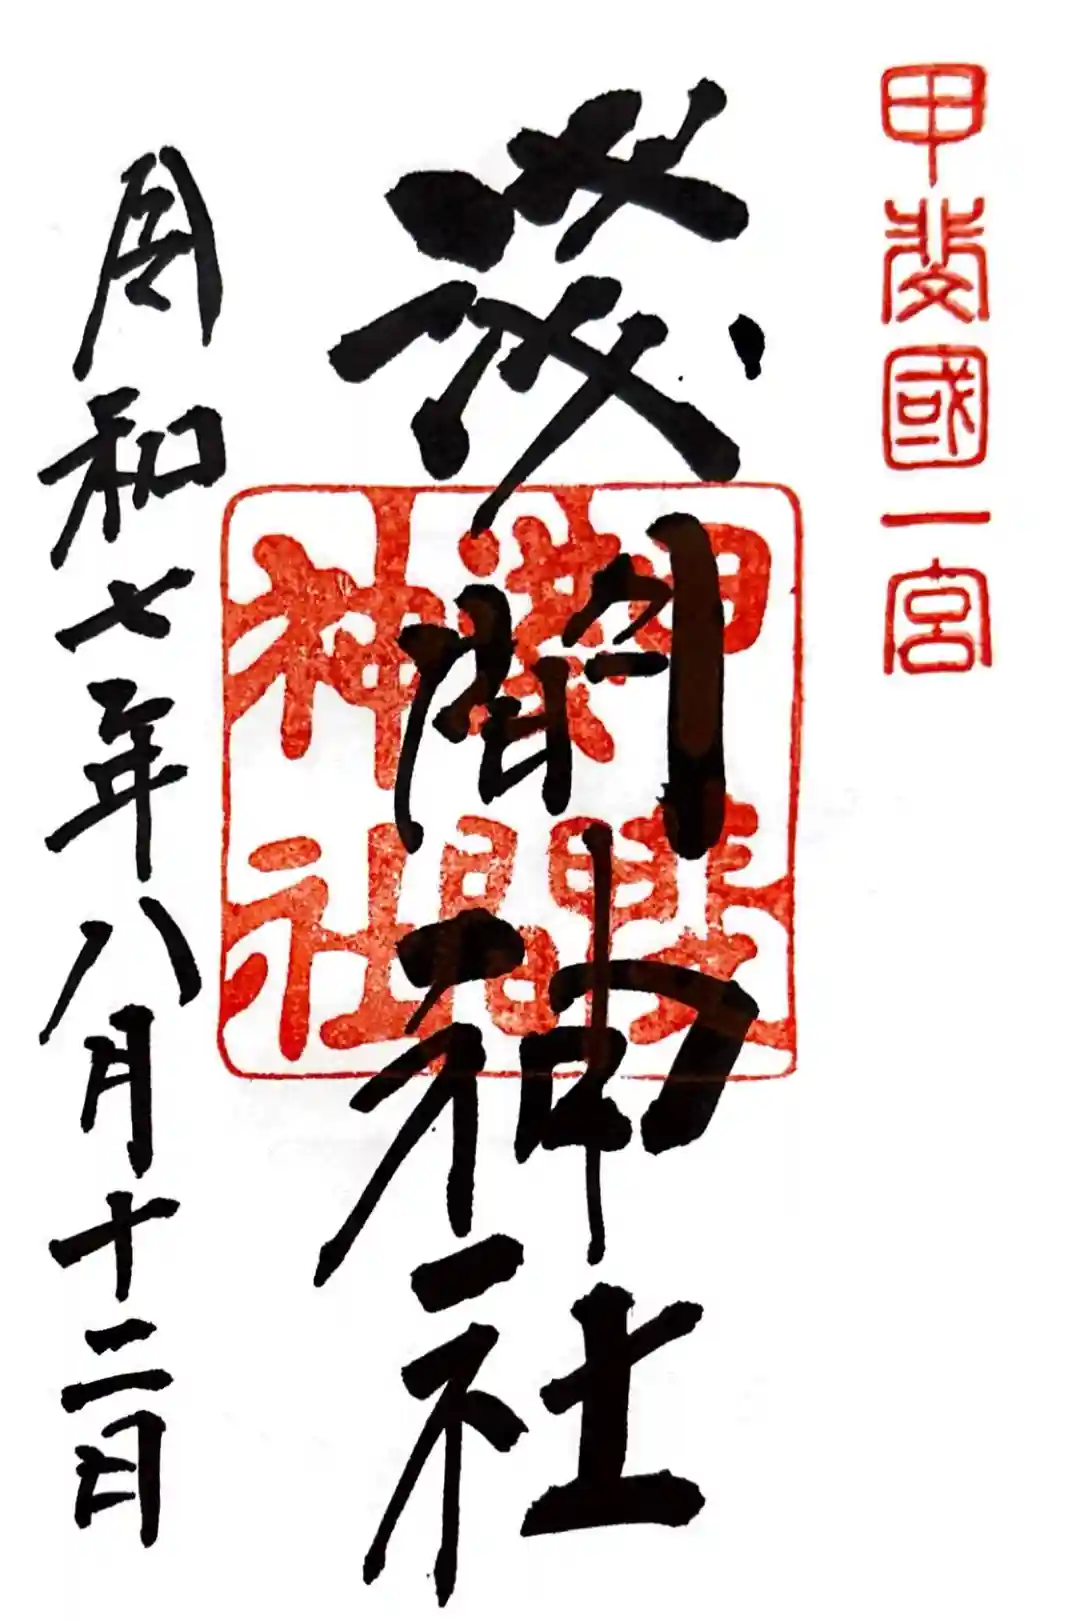 甲斐國一宮
淺間神社
甲斐
淺間
神社
和七年八月十二日